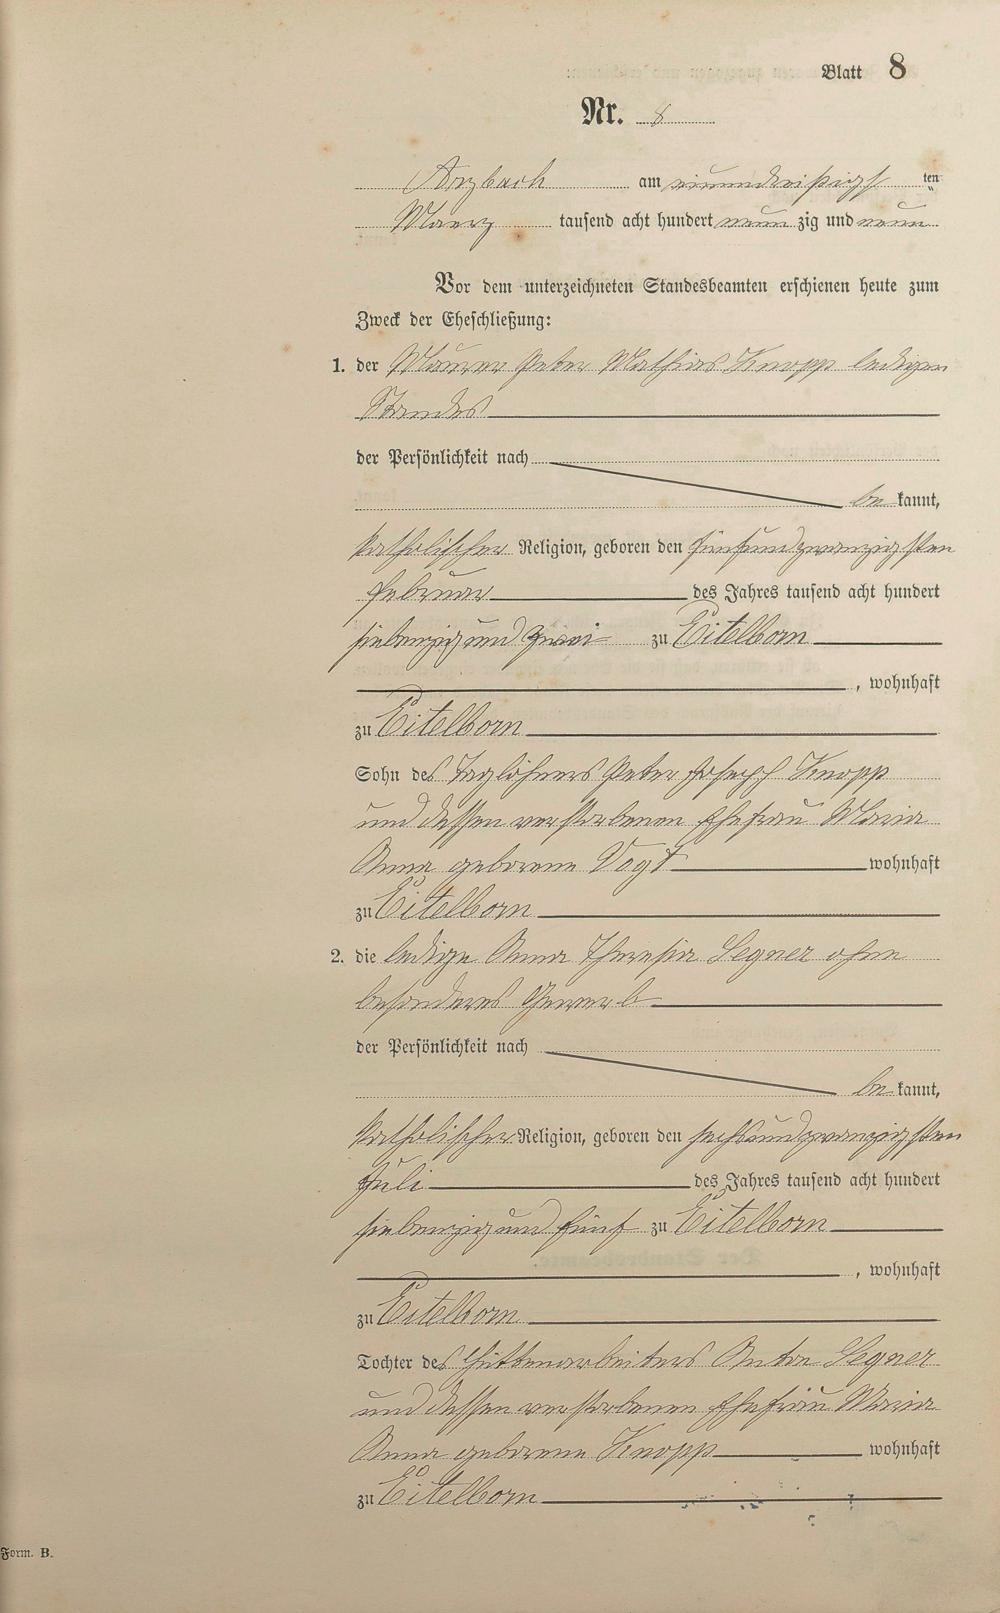 Blatt 8
Nr. 8
Arzbach am einunddreißigst ten
Maerz tausend acht hundert neun zig und neun
Vor dem unterzeichneten Standesbeamten erschienen heute zum
Zweck der Eheschließung:
1. der Maurer Peter Mathias Knopp ledigen
Standes
der Persönlichkeit nach
be kannt,
katholischer Religion, geboren den fünfundzwanzigsten
Februar des Jahres tausend acht hundert
siebenzig und zwei zu Eitelborn
, wohnhaft
zu Eitelborn
Sohn des Taglöhners Peter Joseph Knopp
und dessen verstorbenen Ehefrau Maria
Anna geborene Vogt wohnhaft
zu Eitelborn
2. die ledige Anna Theresia Segner ohne
besonderes Gewerb
der Persönlichkeit nach
be kannt,
katholischer Religion, geboren den sechsundzwanzigsten
Juli des Jahres tausend acht hundert
siebenzig und fünf zu Eitelborn
, wohnhaft
zu Eitelborn
Tochter des Hüttenarbeiters Anton Segner
und dessen verstorbenen Ehefrau Maria
Anna geborene Knopp wohnhaft
zu Eitelborn
Form. B.